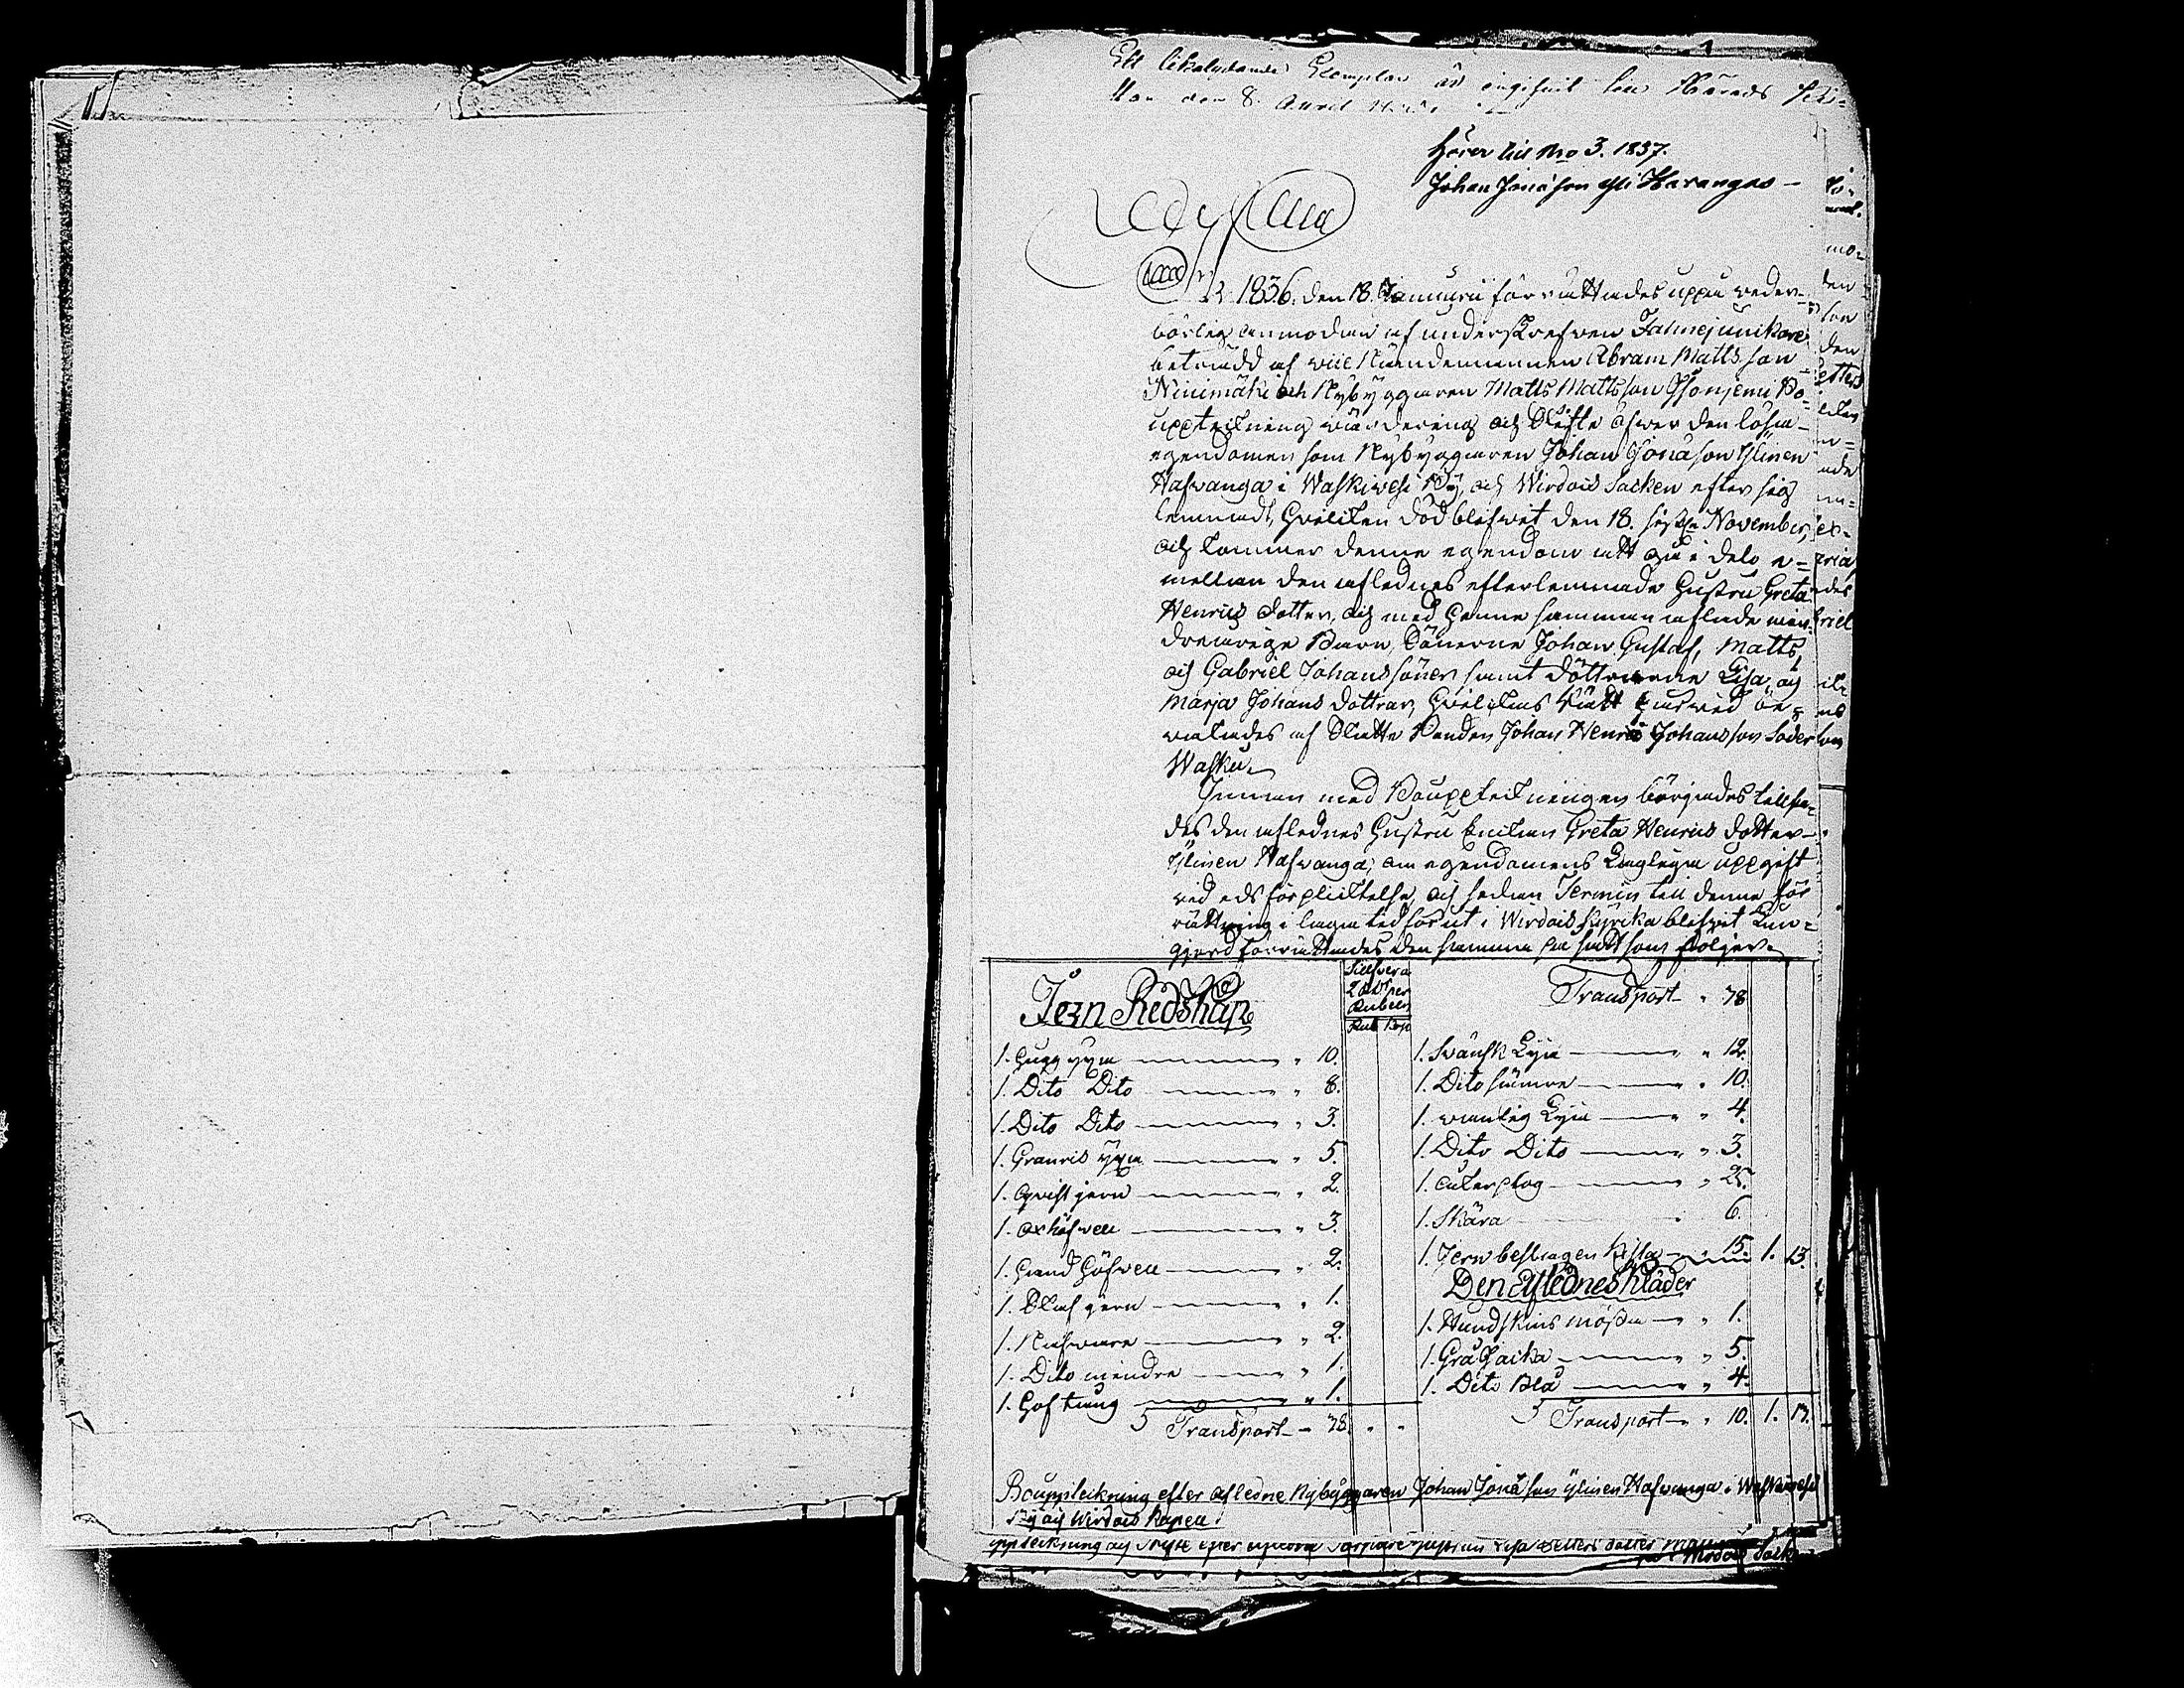 Ett likalydande Exemplar är ingifvit till Härads Rät-
ten den 8. April
Hörer till No 3. 1837.
Johan Jonason Yli Havangas
År 1836. den 18. Januari förrättades uppå veder-
börlig anmodan af underskrefven Fahnejunkare
biträdd af Nämndemannen Abram Mattsson
Niinimäki och Nybyggaren Matts Mattsson Bo-
uppteckning värdering och Skifte öfver den lösa
egendomen som Nybyggaren Johan Jonason Ylinen
Hafvanga i Waskivesi By och Wirdois Socken efter sig
lemnadt, hvilken död blefvit den 18. sistl. November,
och kommer denne egendom att gå i delo e-
mellan den aflednes efterlemnade Hustru Greta
Henrics dotter, och med henne samman aflade min-
dreårige Barn, Sönerne Johan, Gustaf, Matts,
och Gabriel Johanssöner samt döttrarne Lisa, och
Marja Johans dottrar, hvilkas Rätt härvid be-
vakades af Skatte Bonden Johan Henric Johansson Söder
Wasku.
Innan med Bouppteckningen börjades tillsa-
des den aflednes Hustru Enkan Greta Henrics dotter
Ylinen Hafvanga, om egendomens laglega uppgift
vid eds förplicktelse, och sedan Termin till denne för
rättning i laga tid förut i Wirdois Kyrka blefvit Kun-
gjord förrättades den samma på sätt som följer.
Jern Redskap
Silfver
Rubeln
Rub Kop
1. Huggyxa " 10.
1. Dito Dito " 8.
1. Dito Dito " 3.
1. Granris yxa " 5.
1. Qvist jern " 2.
1. Oxhöfvel " 3.
1. Hand Höfvell " 2.
1. Skaf jern " 1.
1. Nafvare " 2.
1. Dito mindre " 1.
1. Hoftång " 1.
Transport " 78. " "
Transport " 78
1. Svänsk Lya " 12.
1. Dito sämre " 10.
1. vanlig Lya " 4.
1. Dito Dito " 3.
1. Åkerplog " 25.
1. Skära 6.
1. Jern beslagen Kista " 15. 1. 13.
Den Aflednes Kläder
1. Hundskins mössa " 1.
1. Grå Jacka " 5.
1. Dito Blå " 4.
Transport " 10. 1. 13.
Bouppteckning efter afledne Nybyggaren Johan Jonason Ylinen Hafvanga i Waskivesi
By och Wirdois Kapell.